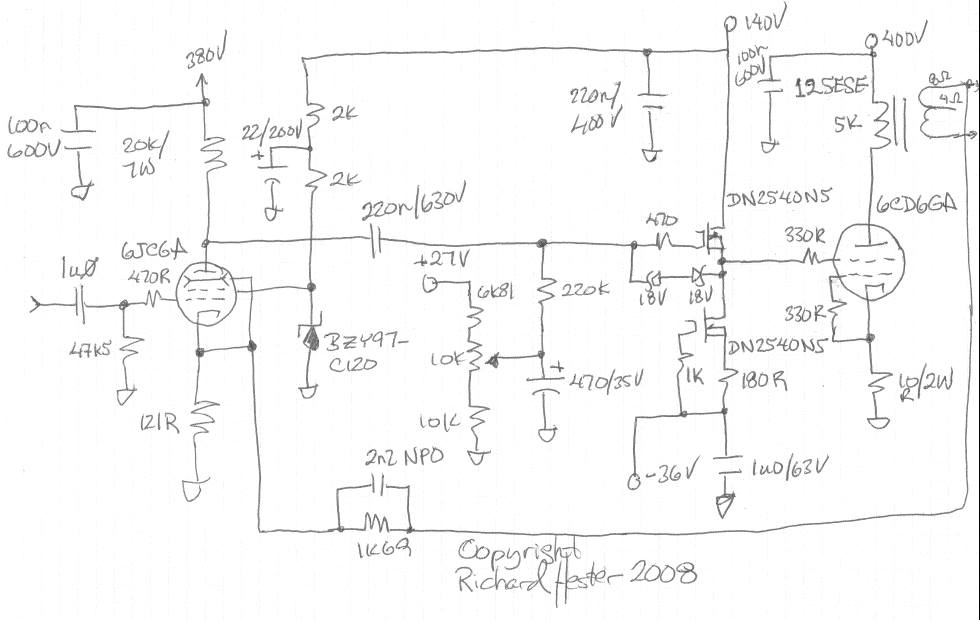 140V
400V
380V
100n
600V
8Ω
4Ω
125ESE
220n/
400V
100n
600V
20K/
7W
22/200V
2K
5K
2K
220n/630V
DN2540N5
6CD6GA
6JC6A
470
330R
1u0
470R
+27V
18V
18V
6K81
220K
330R
47K5
BZY97-
C120
10K
DN2540N5
470/35V
1K
180R
10/2W
R
121R
10K
2n2 NPO
-36V
1u0/63V
Copyright
Richard Hester 2008